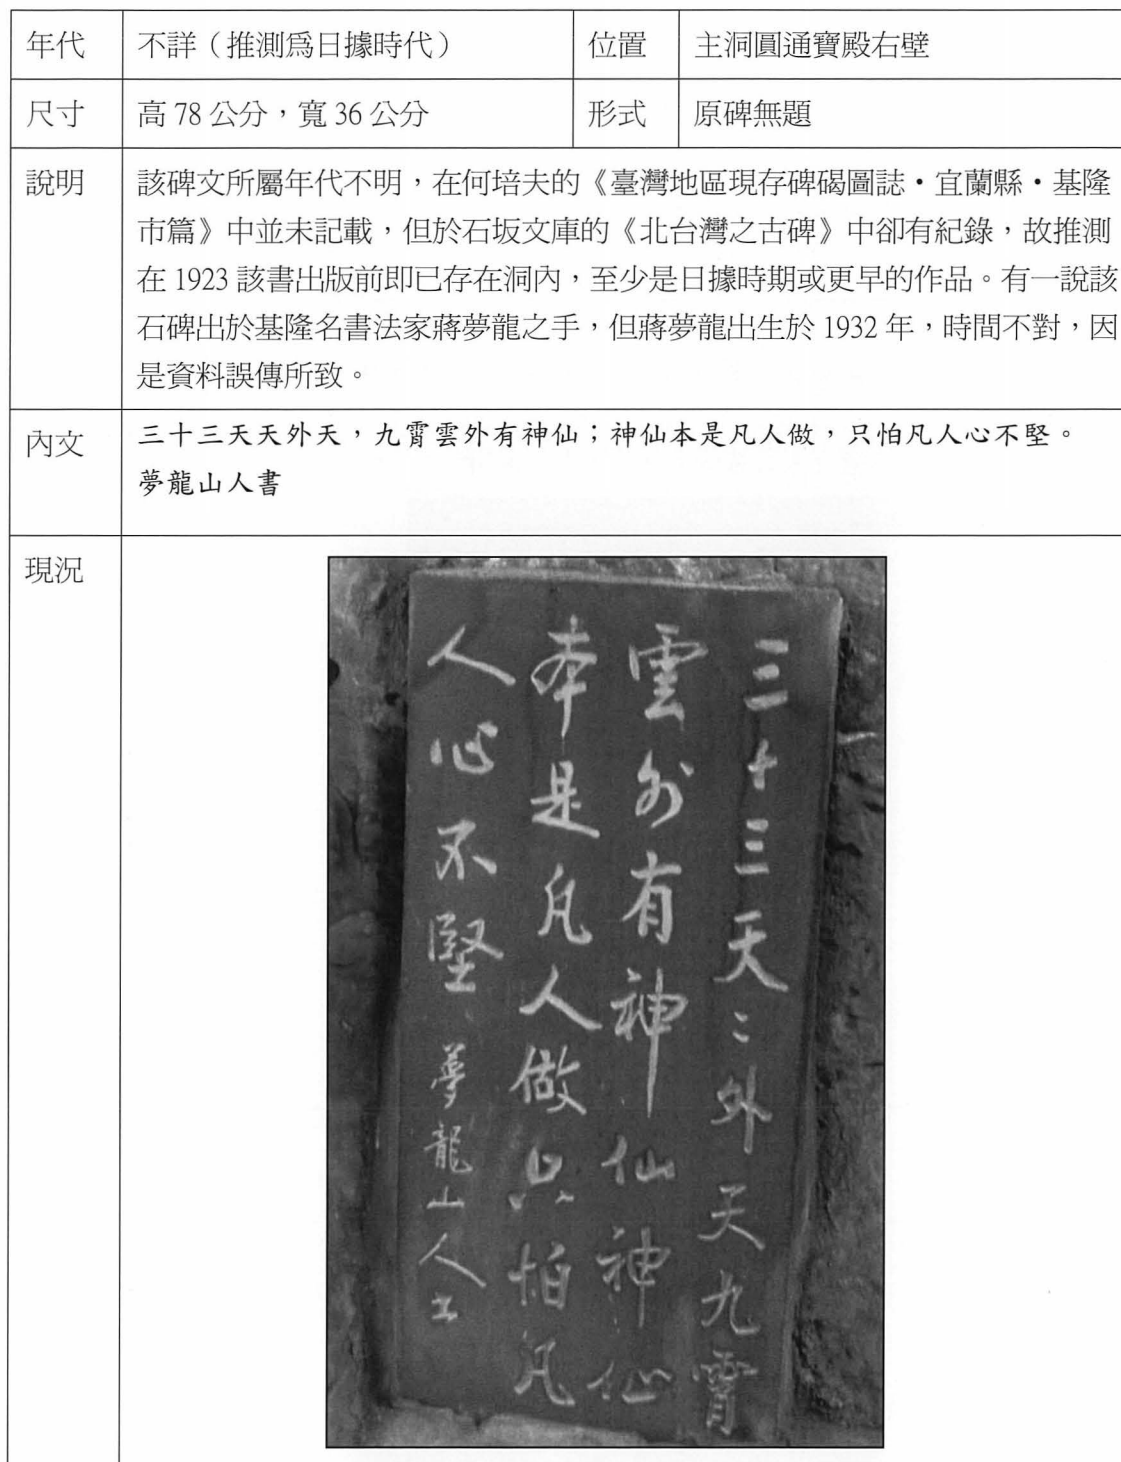 年代 不詳（推測為日據時代） 位置 主洞圓通寶殿右壁
尺寸 高 78 公分，寬 36 公分 形式 原碑無題
說明 該碑文所屬年代不明，在何培夫的《臺灣地區現存碑碣圖誌・宜蘭縣・基隆
市篇》中並未記載，但於石坂文庫的《北台灣之古碑》中卻有紀錄，故推測
在 1923 該書出版前即已存在洞內，至少是日據時期或更早的作品。有一說該
石碑出於基隆名書法家蔣夢龍之手，但蔣夢龍出生於 1932 年，時間不對，因
是資料誤傳所致。
內文 三十三天天外天，九霄雲外有神仙；神仙本是凡人做，只怕凡人心不堅。
夢龍山人書
現況
三十三天〻外天九霄
雲外有神仙神仙
本是凡人做只怕凡
人心不堅 夢龍山人